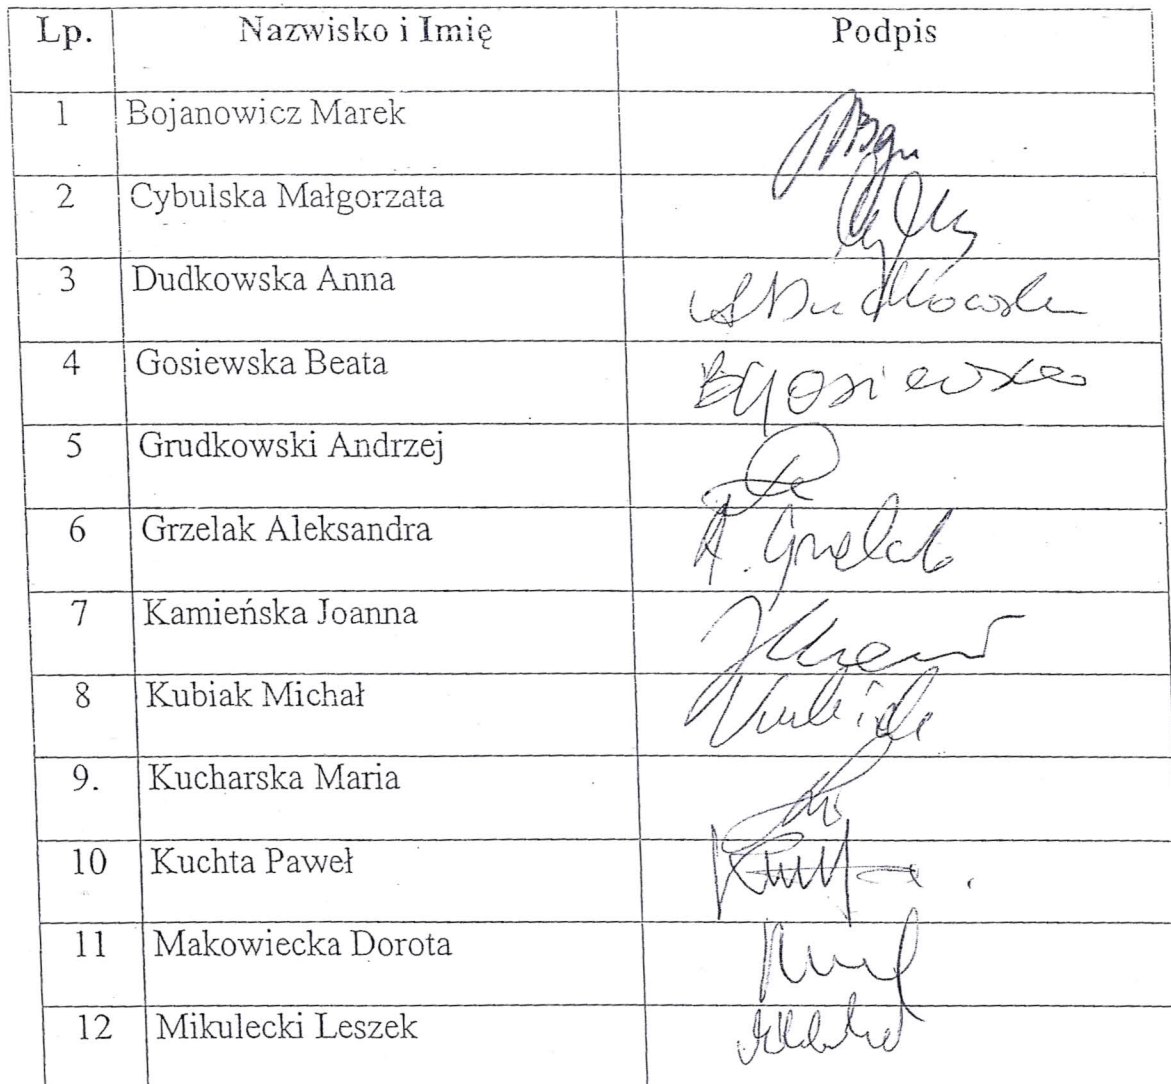 Lp. Nazwisko i Imię Podpis
1 Bojanowicz Marek
2 Cybulska Małgorzata
3 Dudkowska Anna ADudkowska
4 Gosiewska Beata BGosiewska
5 Grudkowski Andrzej
6 Grzelak Aleksandra A. Grzelak
7 Kamieńska Joanna
8 Kubiak Michał Kubiak
9. Kucharska Maria
10 Kuchta Paweł
11 Makowiecka Dorota
12 Mikulecki Leszek